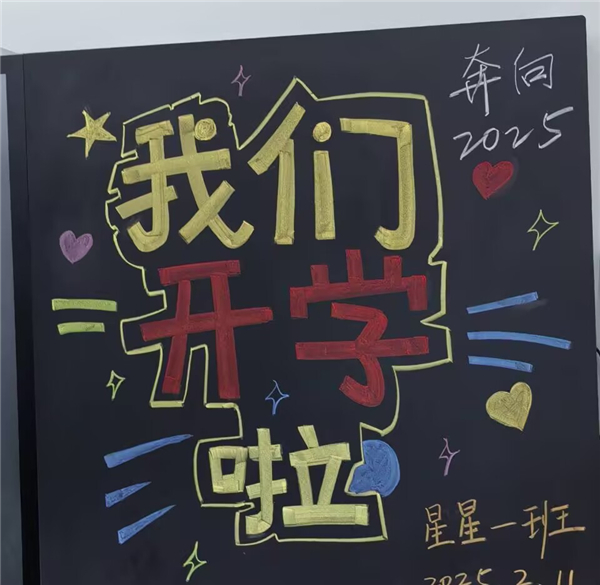 奔向
2025
我们
开学
啦
星星一班
2025.2.11